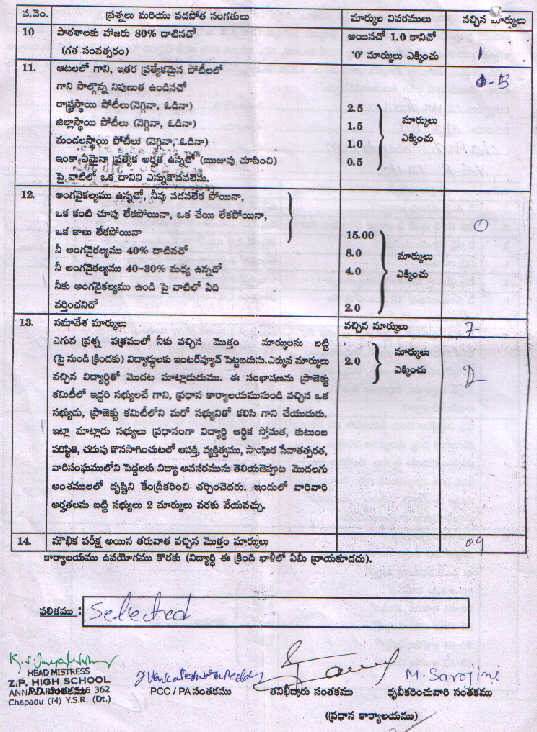 వ.నెం. ప్రశ్నలు మరియు వడపోత సంగతులు మార్కుల వివరములు వచ్చిన మార్కులు
10 పాఠశాలకు హాజరు 80% దాటినచో అయినచో 1.0 కానిచో
(గత సంవత్సరం) '0' మార్కులు ఎక్కించు 1
11. ఆటలలో గాని, ఇతర ప్రత్యేకమైన పోటీలలో
గాని పాల్గొన్న నిపుణుత ఉండినచో
రాష్ట్రస్థాయి పోటీలు(నెగ్గినా, ఓడినా) 2.5
జిల్లాస్థాయి పోటీలు(నెగ్గినా, ఓడినా) 1.5 మార్కులు
మండలస్థాయి పోటీలు(నెగ్గినా, ఓడినా) 1.0 ఎక్కించు
ఇంకా ఏమైనా ప్రత్యేక అర్హత ఉన్నచో (ఋజువు చూపించి) 0.5
పై వాటిలో ఒక దానిని ఎన్నుకొనవలెను.
12. అంగవైకల్యము ఉన్నచో, నీవు నడవలేక పోయినా,
ఒక కంటి చూపు లేకపోయినా, ఒక చేయి లేకపోయినా, 0
ఒక కాలు లేకపోయినా 15.00
నీ అంగవైకల్యము 40% దాటినచో 8.0 మార్కులు
నీ అంగవైకల్యము 40-30% మధ్య ఉన్నచో 4.0 ఎక్కించు
నీకు అంగవైకల్యము ఉండి పై వాటిలో ఏది
వర్తించనిచో 2.0
13. సమావేశ మార్కులు వచ్చిన మార్కులు 7
ఎగువ ప్రశ్న పత్రములో నీకు వచ్చిన మొత్తం మార్కులను బట్టి
(పై నుండి క్రిందకు) విద్యార్థులకు ఇంటర్వ్యూవ్ పెట్టబడును.ఎక్కువ మార్కులు 2.0 మార్కులు
వచ్చిన విద్యార్థితో మొదట మాట్లాడుదుము. ఈ సంభాషణను ప్రాజెక్టు ఎక్కించు 2
కమిటీలో ఇద్దరి సభ్యులచే గాని, ప్రధాన కార్యాలయమునుండి వచ్చిన ఒక
సభ్యుడు, ప్రాజెక్టు కమిటీలోని మరో సభ్యునితో కలిసి గాని చేయుదురు.
ఇట్లా మాట్లాడు సభ్యులు ప్రధానంగా విద్యార్థి ఆర్థిక స్తోమత, కుటుంబ
పరిస్థితి, చదువు కొనసాగించుటలో ఆసక్తి, వ్యక్తిత్వము, సాంఘిక సేవాతత్పరత,
వారిసంఘములోని పెద్దలకు విద్యా అవసరమును తెలియచెప్పుట మొదలగు
అంశములలో దృష్టిని కేంద్రీకరించి చర్చించెదరు. ఇందులో వారివారి
అర్హతలను బట్టి సభ్యులు 2 మార్కులు వరకు వేయవచ్చు.
14. మౌఖిక పరీక్ష అయిన తరువాత వచ్చిన మొత్తం మార్కులు 09
కార్యాలయము ఉపయోగము కొరకు (విద్యార్థి ఈ క్రింది ఖాళీలో ఏమీ వ్రాయకూడదు).
ఫలితము : Selected
M. Sarojini
HEAD MISTRESS
Z.P. HIGH SCHOOL
PCC / PA సంతకము తనిఖీదారు సంతకము ధృవీకరించువారి సంతకము
Chapadu (M) Y.S.R. (Dt.)
(ప్రధాన కార్యాలయము)